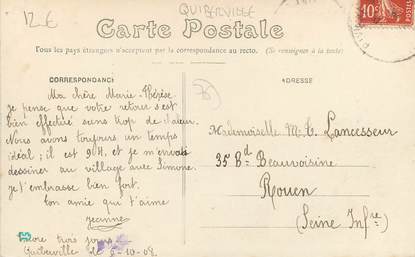 12 €
QUIBERVILLE
Carte Postale
Tous les pays étrangers n'acceptent pas la correspondance au recto. (Se renseigner à la poste)
CORRESPONDANCE
Ma chère Marie-Thérèse
je pense que votre retour s'est
bien effectué sans trop de chaleur.
Nous avons toujours un temps
idéal ; il est 9H. et je m'en vais
dessiner au village avec Simone.
je t'embrasse bien fort.
ton amie qui t'aime
jeanne
Encore trois jours
Quiberville le 6-10-08
76
ADRESSE
Mademoiselle M. T. Lancesseur
35 Bd Beauvoisine
Rouen
(Seine Infre)
10c